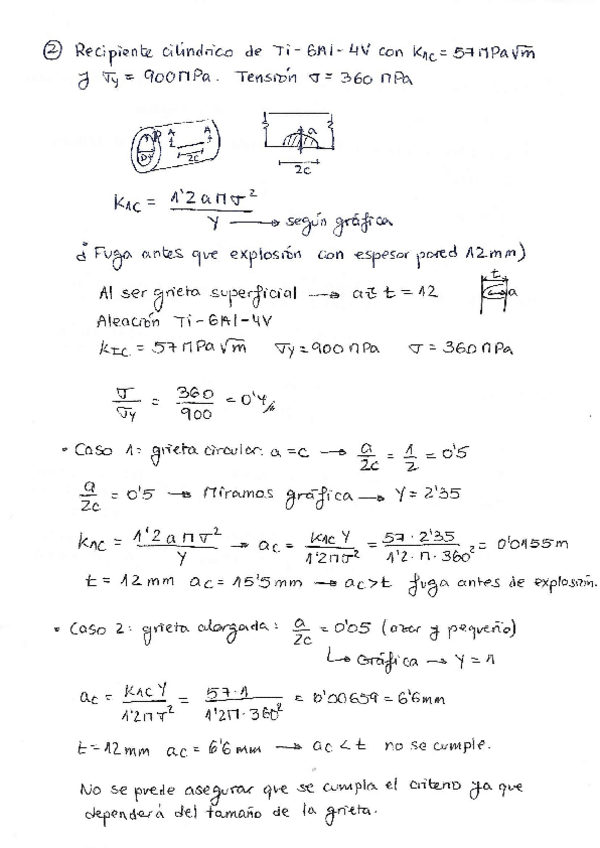 ② Recipiente cilíndrico de Ti-6Al-4V con K1C = 57 MPa√m
y σy = 900 MPa. Tensión σ = 360 MPa
A A
a
2c
2c
K1C = 1'2 a π σ² / Y → según gráfica
¿ Fuga antes que explosión con espesor pared 12mm)
t
Al ser grieta superficial → a ≤ t = 12
a
Aleación Ti-6Al-4V
KIC = 57 MPa√m σy = 900 MPa σ = 360 MPa
σ / σy = 360 / 900 = 0'4
• Caso 1: grieta circular: a = c → a / 2c = 1 / 2 = 0'5
a / 2c = 0'5 → Miramos gráfica → Y = 2'35
K1C = 1'2 a π σ² / Y → ac = K1C Y / 1'2 π σ² = 57 · 2'35 / 1'2 · π · 360² = 0'0155 m
t = 12 mm ac = 15'5 mm → ac > t fuga antes de explosión.
• Caso 2: grieta alargada: a / 2c = 0'05 (azar y pequeño)
↳ Gráfica → Y = 1
ac = K1C Y / 1'2 π σ² = 57 · 1 / 1'2 π · 360² = 0'00659 = 6'6 mm
t = 12 mm ac = 6'6 mm → ac < t no se cumple.
No se puede asegurar que se cumpla el criterio ya que
dependerá del tamaño de la grieta.